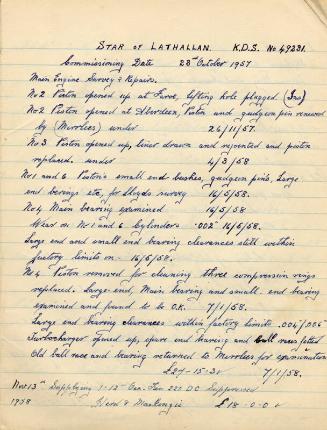 STAR OF LATHALLAN. K.D.S. No 49231.
Commissioning Date 28th October 1957
Main Engine Survey & Repairs.
No2 Piston opened up at Faroe, lifting hole plugged (Ins)
No2 Piston opened at Aberdeen, Piston and gudgeon pin renewed
by (Mirrlees) under 26/11/57.
No3 Piston opened up, liner drawn and rejointed and piston
replaced. under 4/3/58
No1 and 6 Piston's small end bushes, gudgeon pins, Large
end berings etc, for Lloyds survey 16/5/58.
No4 Main bearing examined 16/5/58
Wear on No1 and 6 Cylinders .002" 16/5/58.
Large end and small end bearing clearances still within
factory limits on - 16/5/58.
No4 Piston removed for cleaning three compression rings
replaced. Large-end, Main bearing and small end bearing
examined and found to be O.K. 7/1/58.
Large end bearing clearances within factory limits .005"/.006"
Turbocharger opened up, spare end bearing and ball races fitted
Old ball race and bearing returned to Mirrlees for examination
£27-15-3d 7/1/58.
Nov 13th Supplying 1-12" Fan 220 DC Suppressed
1958 Wood & MacKenzie £18.0.0d